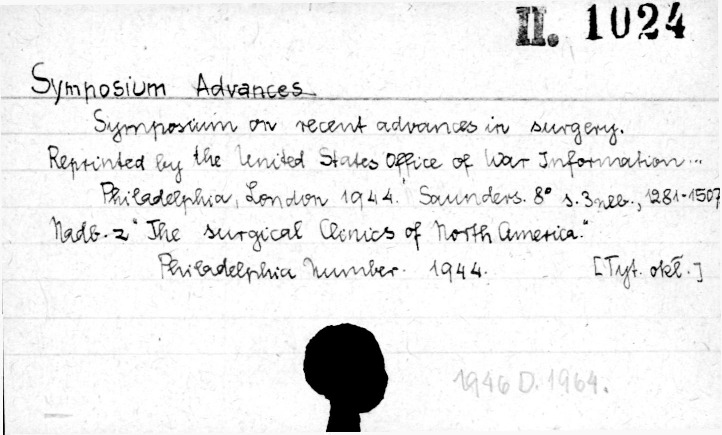 II. 1024
Symposium Advances
Symposium on recent advances in surgery.
Reprinted by the United States Office of War Information...
Philadelphia, London 1944. Saunders. 8° s. 3 nlb., 1281-1507
Nadb. z "The surgical Clinics of North America."
Philadelphia Number. 1944. [Tyt. okł.]
1946 D. 1964.